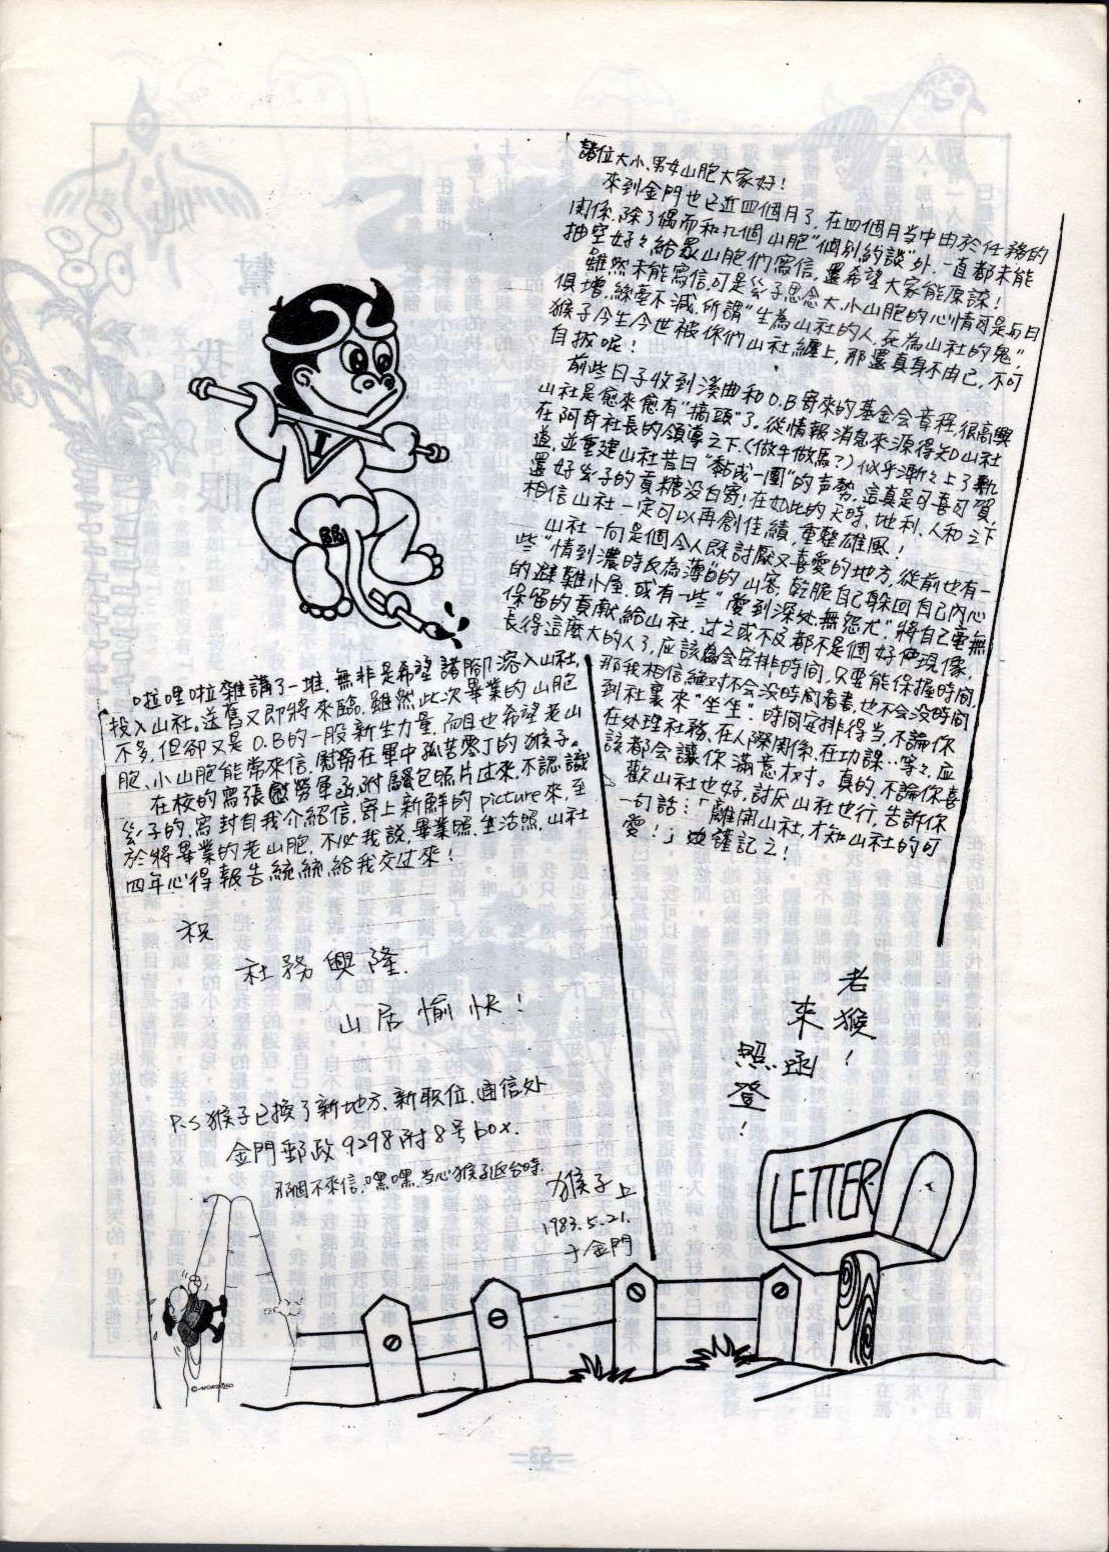 諸位大小、男女山胞大家好！
來到金門也已近四個月了，在四個月当中由於任務的
関係，除了偶而和几個山胞“個別約談”外，一直都未能
抽空好々給眾山胞們寫信，還希望大家能原諒！
雖然未能寫信，可是幺子思念大、小山胞的心情可是与日
俱增，絲毫不減，所謂“生為山社的人，死為山社的鬼”，
猴子今生今世被你們山社纏上，那還真身不由己，不可
自拔呢！
前些日子收到溪曲和O.B寄來的基金会章程，很高興
山社是愈來愈有“搞頭”了，從情報消息來源得知山社
在阿奇社長的領導之下（做牛做馬？）似乎漸々上了軌
道，並重建山社昔日“黏成一團”的声勢，這真是可喜可賀，
還好幺子的貢糖没白寄！在如此的天時、地利、人和之下
相信山社一定可以再創佳績，重整雄風！
山社一向是個令人既討厭又喜愛的地方，從前也有一
些“情到濃時反為薄”的山客，乾脆自己躲回自己內心
的避難小屋，或有一些“愛到深処無怨尤”，將自己毫無
保留的貢献給山社，过之或不及都不是個好現像，
長得這麼大的人了，應該会安排時間，只要能保握時間，
那我相信絕对不会没時間看書，也不会没時間
到社裏來“坐坐”。時間安排得当，不論你
在处理社務、在人際関係、在功課…等々，应
該都会讓你滿意才对。真的，不論你喜
歡山社也好，討厌山社也行，告訴你
一句話：「離開山社，才知山社的可
愛！」謹記之！
哇啦哩啦雜講了一堆，無非是希望諸腳溶入山社，
投入山社。送舊又即將來臨，雖然此次畢業的山胞
不多，但卻又是O.B的一股新生力量，而且也希望老山
胞、小山胞能常來信，慰荞在軍中孤苦零丁的猴子。
在校的寫張慰勞軍函，附騷包照片过來，不認識
幺子的，寫封自我介紹信，寄上新鮮的picture來，至
於將畢業的老山胞，不必我說，畢業照、生活照、山社
四年心得報告統統給我交过來！
祝
社務興隆．
山居愉快！
P.S猴子已換了新地方、新职位、通信处
金門郵政9298附8号box．
那個不來信，嘿嘿，当心猴子返台時．
猴子上
1983.5.21.
于金門
老猴！
來函
照登！
LETTER